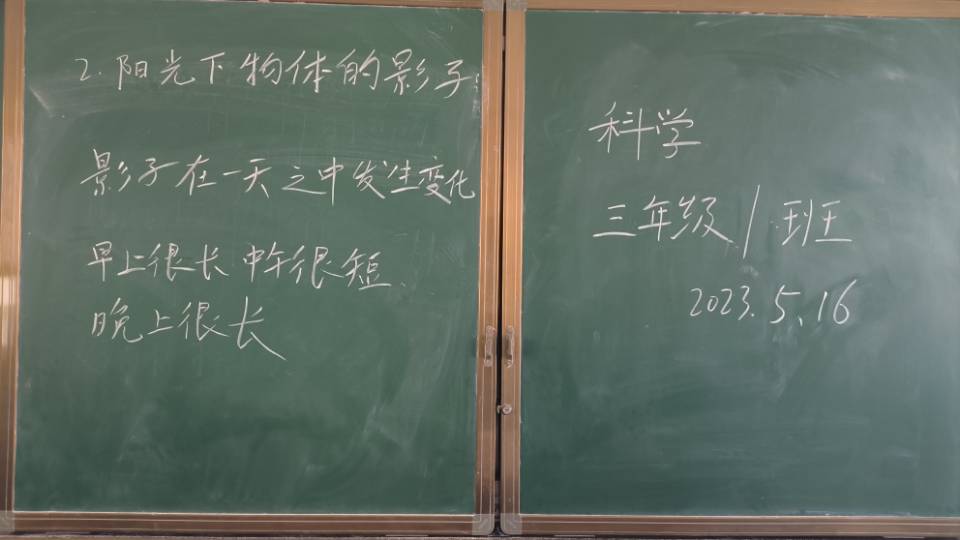 2. 阳光下物体的影子
影子在一天之中发生变化
早上很长 中午很短.
晚上很长
科学
三年级1班
2023.5.16